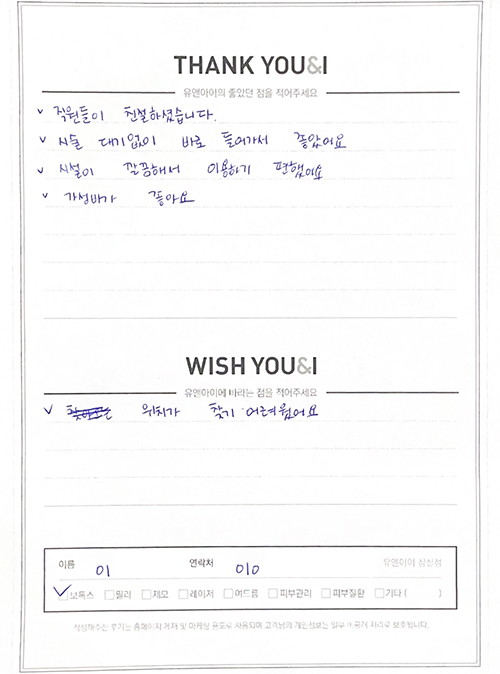 THANK YOU&I
유앤아이의 좋았던 점을 적어주세요
✓ 직원들이 친절하셨습니다.
✓ 시술 대기없이 바로 들어가서 좋았어요
✓ 시설이 깔끔해서 이용하기 편했어요
✓ 가성비가 좋아요
WISH YOU&I
유앤아이에 바라는 점을 적어주세요
✓ 위치가 찾기 어려웠어요
이름 이 연락처 010 유앤아이 잠실점
✓ 보톡스 □ 필러 □ 제모 □ 레이저 □ 여드름 □ 피부관리 □ 피부질환 □ 기타 ( )
작성해주신 후기는 홈페이지 게재 및 마케팅 용도로 사용되며 고객님의 개인정보는 일부 비공개 처리로 보호됩니다.